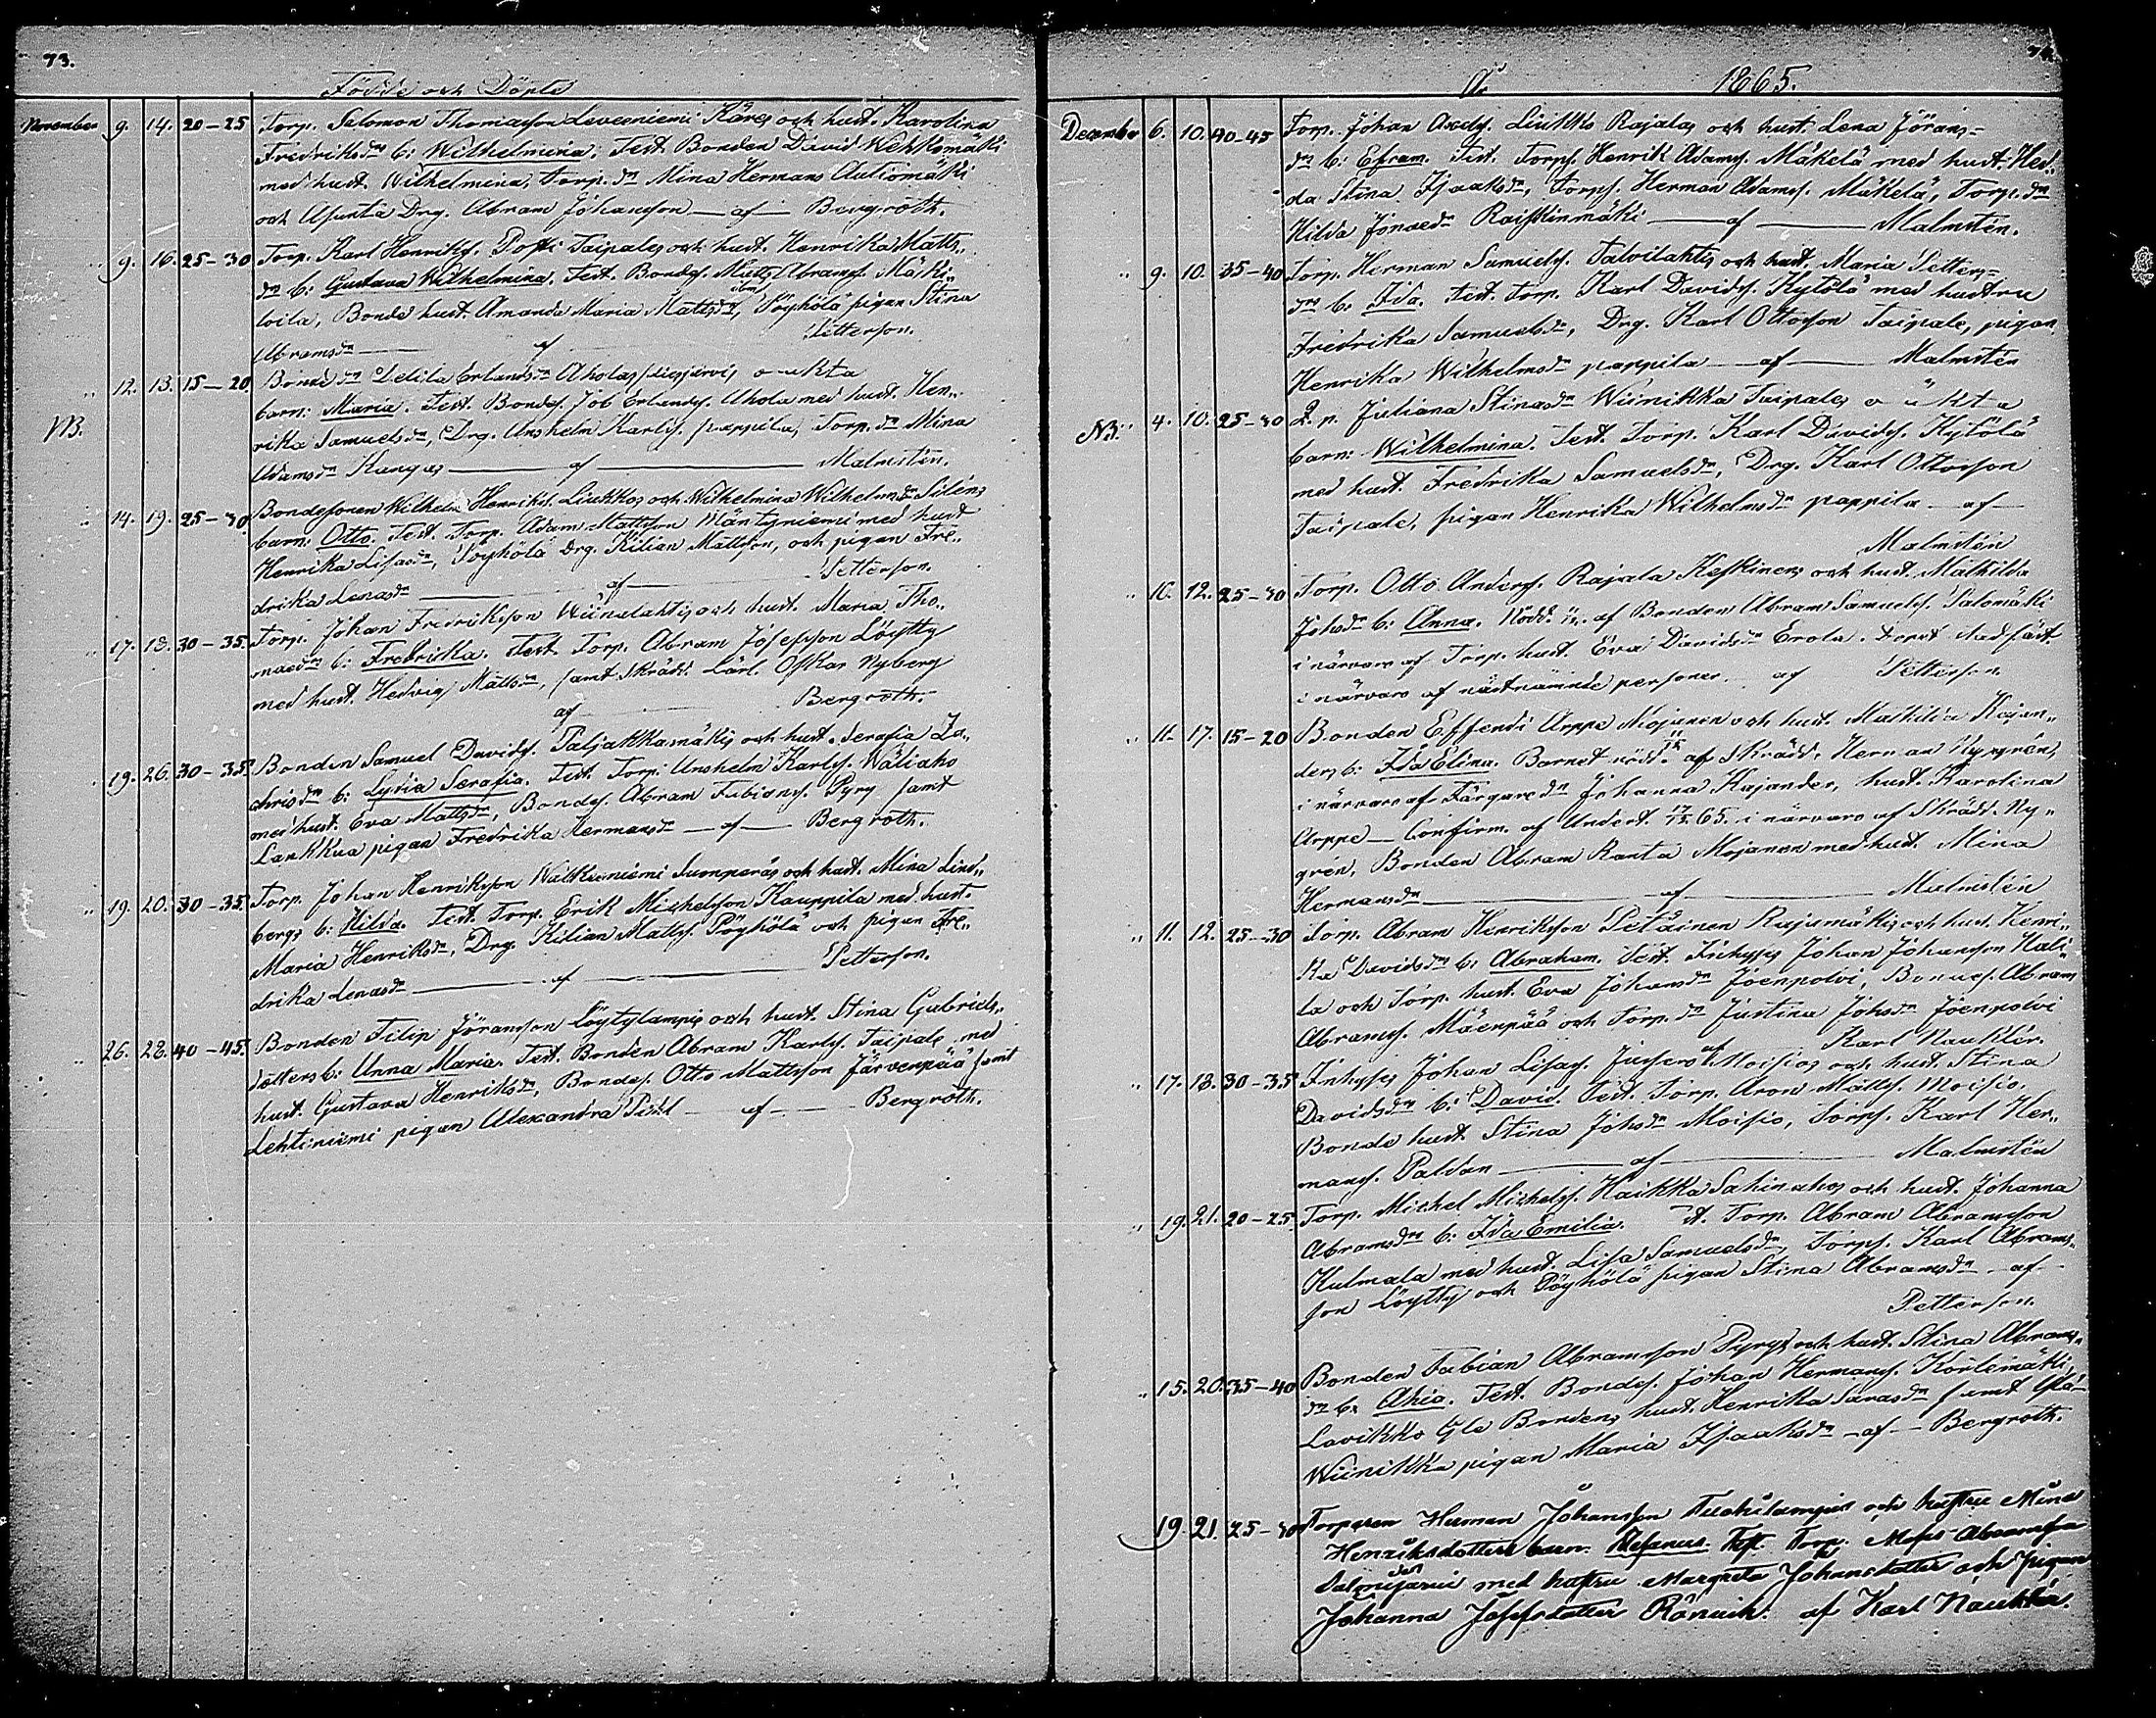 73.
Födde och Döpte
November 9. 14. 20-25 Torp. Salomon Thomasson Leveeniemi Käres och hust. Karolina
Fredriksdrs b: Wilhelmina. Test. Bonden David Wehkomäki
med hust. Wilhelmina, Torp.dn Mina Hermans Autiomäki
och Asunta Drg. Abram Johansson — af — Bergroth.
" 9. 16. 25-30 Torp. Karl Henriks. Posti Taipales och hust. Henrika Matts
drs b: Gustava Wilhelmina. Test. Bondes. Matts Abrams. Mäki
loila, Bonde hust. Amanda Maria Mattsdn, Pöyhölä pigan Stina
Abramsdn — af — Petterson.
" 12. 13. 15-20 Bondedn Delila Erlandsdn Aholas o äkta
NB. barn: Maria. Test. Bondes. Job Erlands. Ahola med hust. Hen
rika Samuelsdn, Drg. Anshelm Karls. pappila, Torp.dn Mina
Adamsdn Kangas — af — Malmstén.
" 14. 19. 25-30 Bondesonen Wilhelm Henriks. Liukkos och Wilhelmina Wilhelmsdn Siléns
barn: Otto. Test. Torp. Adam Mattsson Mäntyniemi med hust
Henrika Lisasdn, Pöyhölä Drg. Kilian Mattsson, och pigan Fre
drika Lenasdn — af — Petterson.
" 17. 18. 30-35. Torp. Johan Fredriksson Wiinalahtis och hust. Maria Tho
masdrs b: Fredrika. Test. Torp. Abram Josefsson Löytty
med hust. Hedvig Mattsdn, samt Skrädd. Lärl. Oskar Nyberg
af — Bergroth.
" 19. 26. 30-35. Bonden Samuel Davids. Paljakkamäkis och hust. Serafia Za
chrisdrs b: Lydia Serafia. Test. Torp. Anshelm Karls. Wäliaho
med hust. Eva Mattsdn, Bondes. Abram Fabians. Pyry samt
Laukkua pigan Fredrika Hermansdn — af — Bergroth.
" 19. 20. 30-35. Torp. Johan Henriksson Walkeeniemi Sumperäs och hust. Mina Lind
bergs b: Hilda. Test. Torp. Erik Michelsson Kauppila med hust.
Maria Henriksdn, Drg. Kilian Matts. Pöyhölä och pigan Fre
drika Lenasdn — af — Petterson.
" 26. 28. 40-45. Bonden Filip Jöransson Löytylampis och hust. Stina Gabriels
dotters b: Anna Maria. Test. Bonden Abram Karls. Taipale med
hust. Gustava Henriksdn, Bondes. Otto Mattsson Järvenpää samt
Lehtiniemi pigan Alexandra Pihl — af — Bergroth.
74.
År 1865.
December 6. 10. 40-45 Torp. Johan Axels. Liukko Rajalas och hust. Lena Jörans-
drs b: Efram. Test. Torps. Henrik Adams. Mäkelä med hust. Hed
da Stina Isaaksdn, Torps. Herman Adams. Mäkelä, Torp.dn
Hilda Jonaedn Raistinmäki — af — Malmstén.
" 9. 10. 35-40 Torp. Herman Samuels. Talvilahtis och hust. Maria Petters-
drs b: Ida. Test. Torp. Karl Davids. Kytölä med hustru
Fredrika Samuelsdn, Drg. Karl Ottosson Taipale, pigan
Henrika Wilhelmsdn pappila — af — Malmstén
NB. " 4. 10. 25-30 Q. p. Juliana Stinasdn Wiinikka Taipales o äkta
barn: Wilhelmina. Test. Torp. Karl Davids. Kytölä
med hust. Fredrika Samuelsdn, Drg. Karl Ottosson
Taipale, pigan Henrika Wilhelmsdn pappila — af —
Malmstén
" 10. 12. 25-30 Torp. Otto Anders. Rajala Keskinens och hust. Mathilda
Johsdrs b: Anna. Nödd. af Bonden Abram Samuels. Salomäki
i närvaro af Torp. hust. Eva Davidsdn Erola. Dopet stadfäst.
i närvaro af nästnämnde personer. af Petterson.
" 11. 17. 15-20 Bonden Effendi Arppe Mojanen och hust. Mathilda Kajan
ders b: Ida Elina. Barnet nödd. af Skrädd. Herman Nygrén,
i närvaro af Färgaredn Johanna Kajander, hust. Karolina
Arppe — Confirm. af Undert. 17/12 65. i närvaro af Skrädd. Ny
grén, Bonden Abram Ranta Mojanen med hust. Mina
Hermansdn — af — Malmstén
" 11. 12. 25-30 Torp. Abram Henriksson Petäinen Rajamäkis och hust. Henri
ka Davidsdrs b: Abraham. Test. Inhyses Johan Johansson Hali
la och Torp. hust. Eva Johansdn Joenpolvi, Bondes. Abram
Abrams. Mäenpää och Torp.dn Justina Johsdn Joenpolvi
af Karl Nauklér.
" 17. 18. 30-35 Inhyses Johan Lisas. Jussero Moisios och hust. Stina
Davidsdrs b: David. Test. Torp. Aron Matts. Moisio,
Bonde hust. Stina Johsdn Moisio, Torps. Karl Her
mans. Paldan — af — Malmstén
" 19. 21. 20-25 Torp. Michel Michels. Haikka Sahinahos och hust. Johanna
Abramsdrs b: Ida Emilia. Test. Torp. Abram Abramsson
Kulmala med hust. Lisa Samuelsdn, Torps. Karl Abrams
son Löytty och Pöyhölä pigan Stina Abramsdn — af —
Petterson.
" 15. 20. 35-40 Bonden Fabian Abramsson Pyrys och hust. Stina Abrams
drs b: Ahia. Test. Bondes. Johan Hermans. Kortemäki,
Lavikko Gla Bondens hust. Henrika Sarasdn samt Gla
Wiinikka pigan Maria Isaaksdn — af — Bergroth.
19. 21. 25-30 Torparen Herman Johansson Tuohilampis och hustru Mina
Henriksdotters barn: Stefanus. Test. Torp. Abramsson
Salmijärvi med hustru Margreta Johansdotter och pigan
Johanna Josefsdotter Rönnvik. af Karl Nauklér.